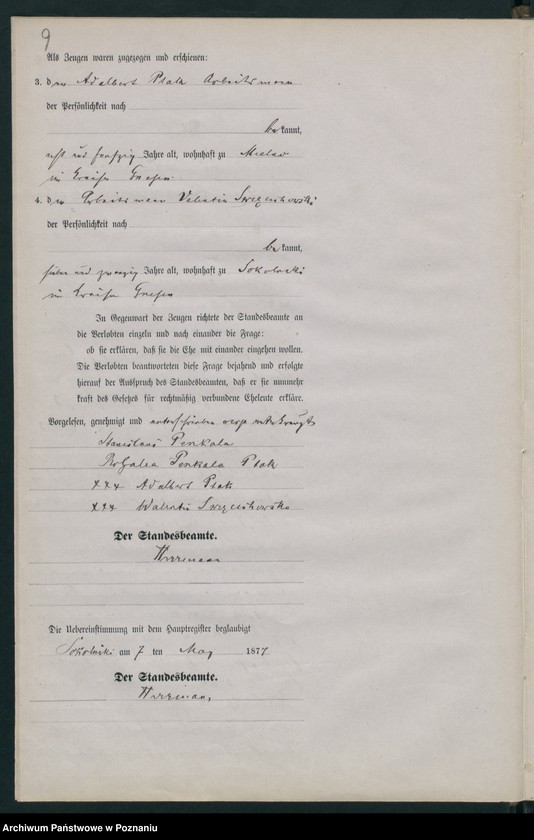 9
Als Zeugen waren zugezogen und erschienen:
3. der Adalbert Ptak Arbeitsmann
der Persönlichkeit nach
bekannt,
acht und fünfzig Jahre alt, wohnhaft zu
im Kreise Gnesen
4. der Arbeitsmann Valentin
der Persönlichkeit nach
bekannt,
sieben und zwanzig Jahre alt, wohnhaft zu Sokolniki
im Kreise Gnesen
In Gegenwart der Zeugen richtete der Standesbeamte an
die Verlobten einzeln und nach einander die Frage:
ob sie erklären, daß sie die Ehe mit einander eingehen wollen.
Die Verlobten beantworteten diese Frage bejahend und erfolgte
hierauf der Ausspruch des Standesbeamten, daß er sie nunmehr
kraft des Gesetzes für rechtmäßig verbundene Eheleute erkläre.
Vorgelesen, genehmigt und unterschrieben resp unterkreuzt
Stanislaus Penkala
Penkala Ptak
+++ Adalbert Ptak
+++ Walentin
Der Standesbeamte.
Die Uebereinstimmung mit dem Hauptregister beglaubigt
Sokolniki am 7 ten May 1877
Der Standesbeamte.
Archiwum Państwowe w Poznaniu